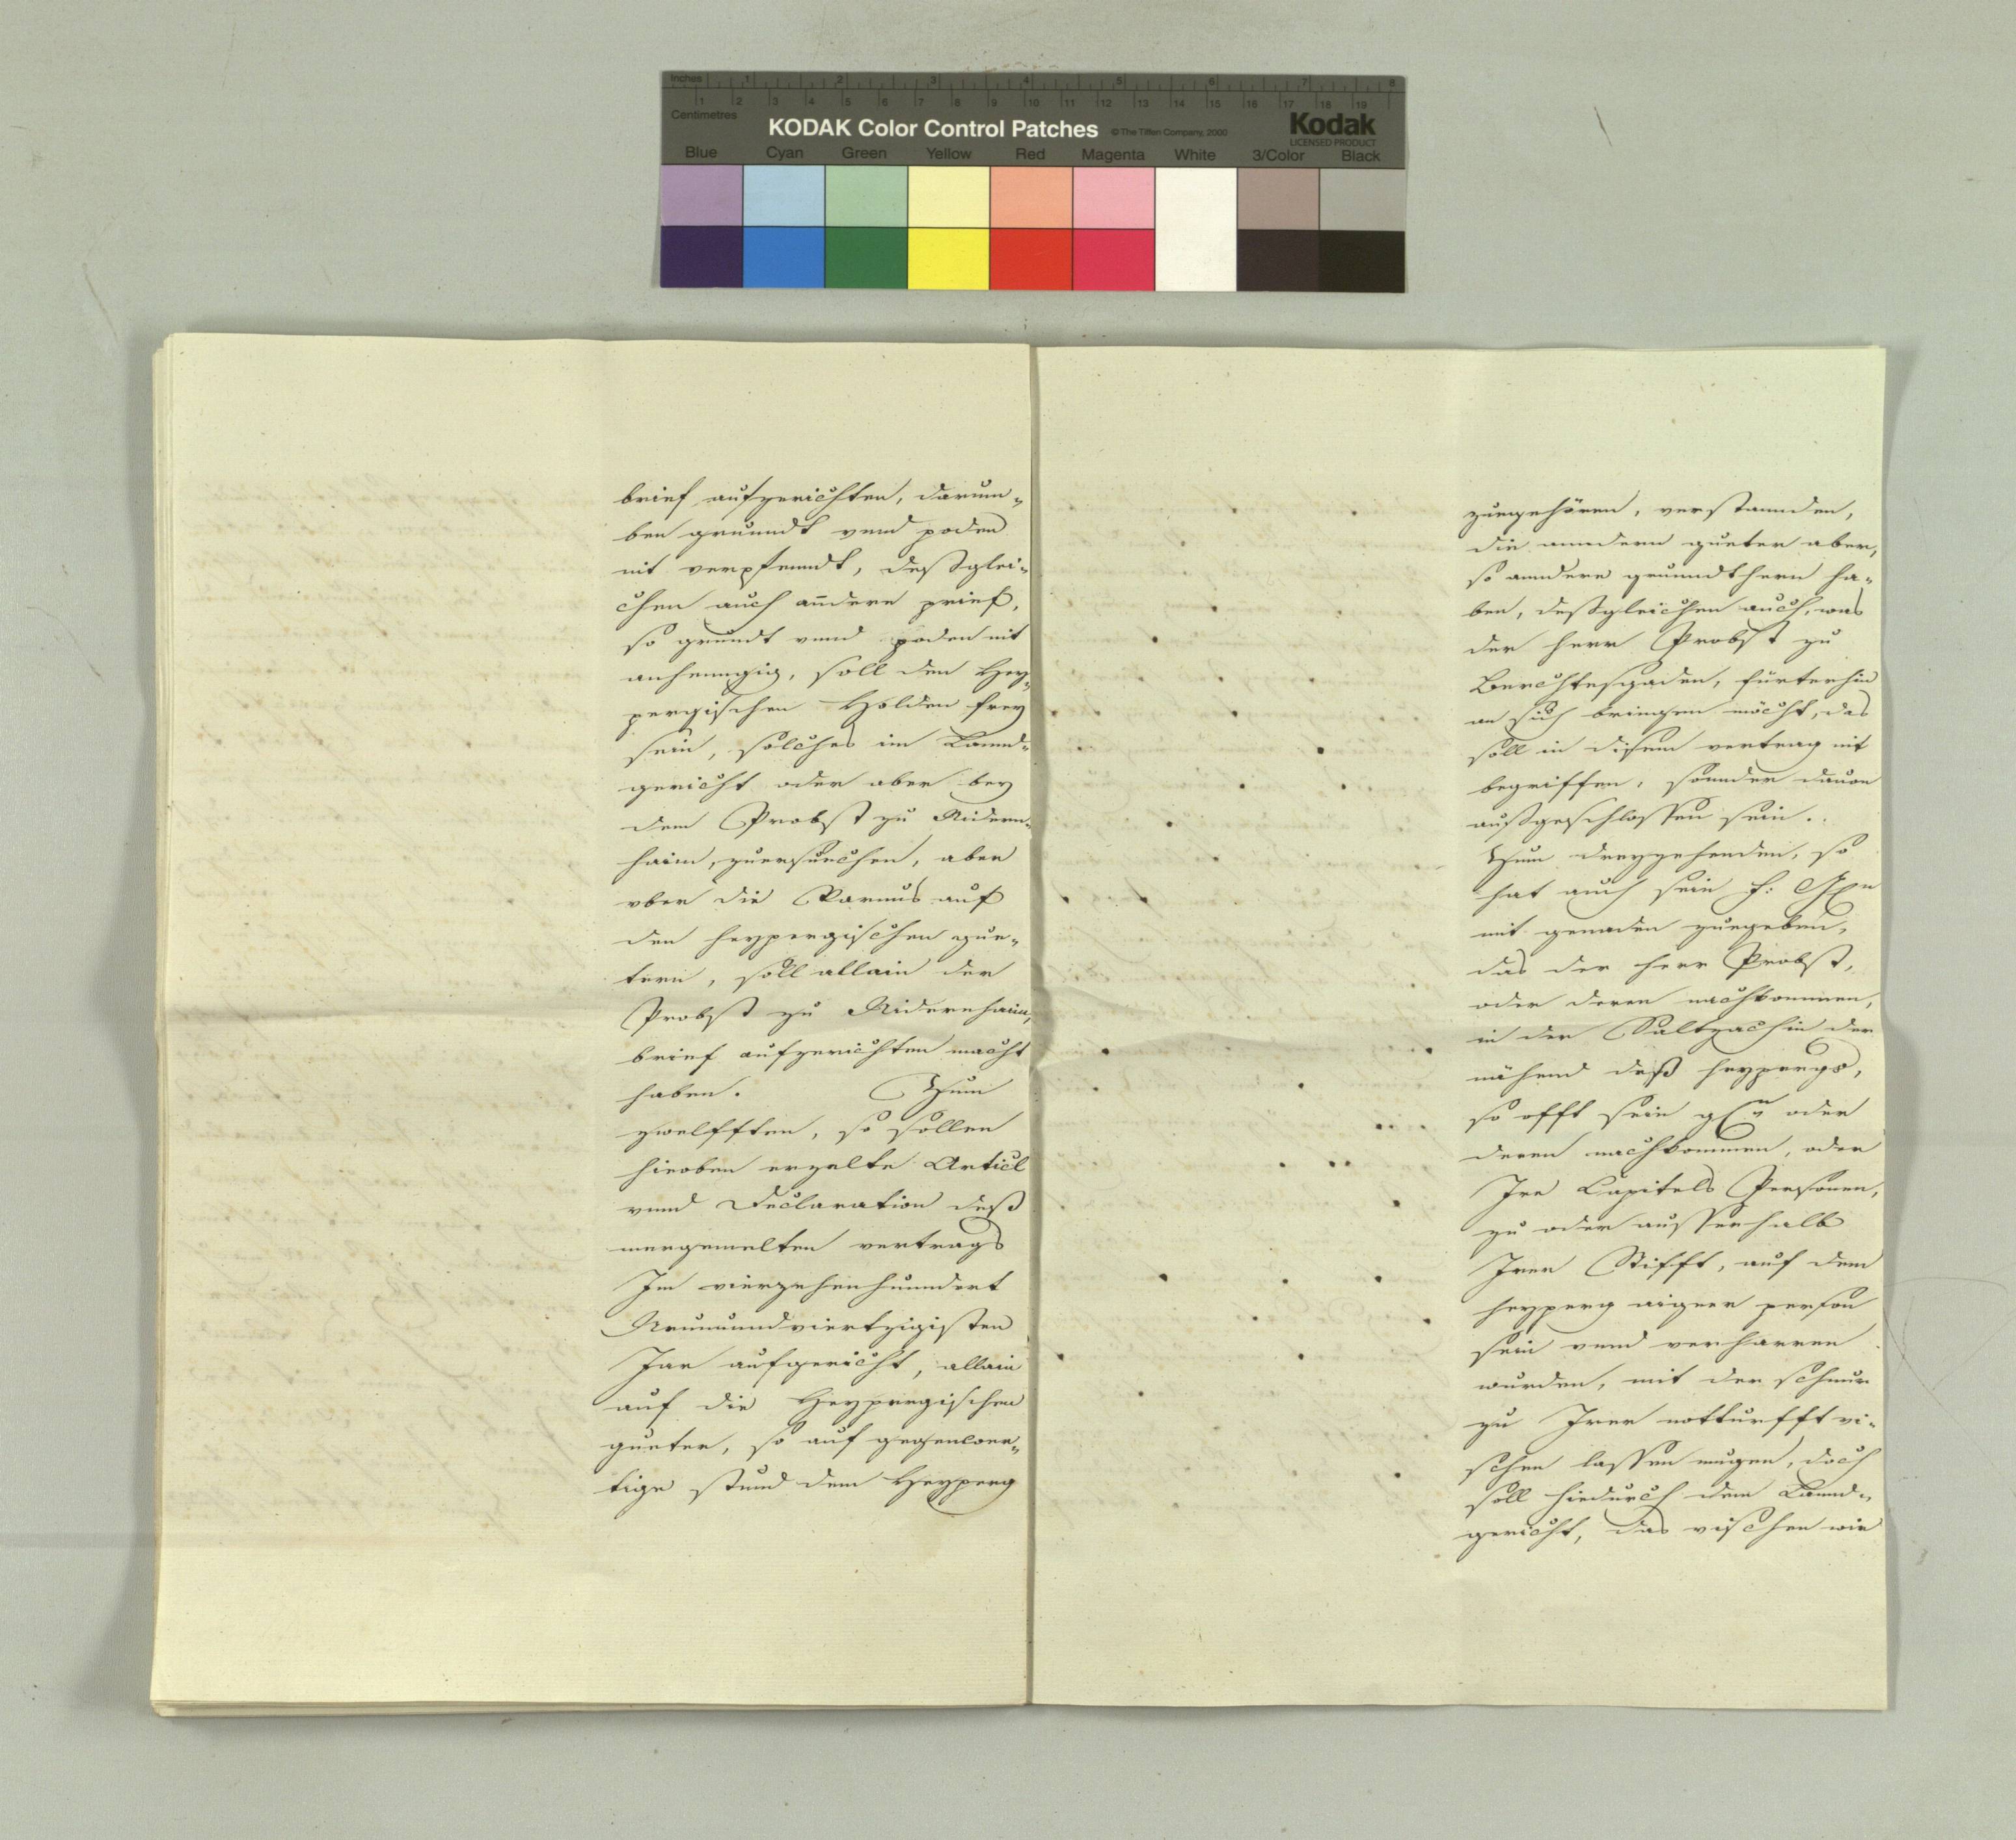 Inches 1 2 3 4 5 6 7 8
1 2 3 4 5 6 7 8 9 10 11 12 13 14 15 16 17 18 19
Centimetres
KODAK Color Control Patches © The Tiffen Company, 2000 Kodak
LICENSED PRODUCT
Blue Cyan Green Yellow Red Magenta White 3/Color Black
brief aufgerichten, darum-
ben grunndt vnnd poden
nit verpfenndt, deßglei-
chen auch anndere prief,
so grundt vnnd poden nit
anhenngig, soll den Hey-
pergischen Holden frey
sein, solches im Lannd-
gericht oder aber bey
dem Probst zu Nidern-
haim, zuersuechen, aber
vber die Paumus auf
den heypergischen gue-
tern, soll allain der
Probst zu Nidernhaim,
brief aufgerichten macht
haben. Zum
zwelfften, so sollen
hieoben erzelte Articl
vnnd Declaration deß
mergemelten vertrags
Im vierzehenhundert
Neununndviertzigisten
Jar aufgericht, allain
auf die Heypergischen
gueter, so auf gegenwer-
tige stund dem Heyperg
zuegehören, verstannden,
die anndern gueter aber,
so anndere grundthern ha-
ben, deßgleichen auch, was
der herr Probst zu
Berchtesgaden, fürterhin
an sich bringen möcht, das
soll in disem vertrag nit
begriffen, sonnder dauon
außgeschlossen sein.
Zum dreyzehenden, so
hat auch sein f:
mit genaden zuegeben,
das der herr Probst,
oder deren nachkommen,
in der Saltzach in der
nähend deß heypergs,
so offt sein oder
deren nachkommen, oder
Ire Capitels Personen,
zu oder ausserhalb
Irer Stifft, auf dem
heyperg aigner person
sein vnnd verharren
wurden, mit der schnur
zu Irer notturfft vi-
schen lassen mugen, doch
soll hiedurch dem Lannd-
gericht, das vischen wie